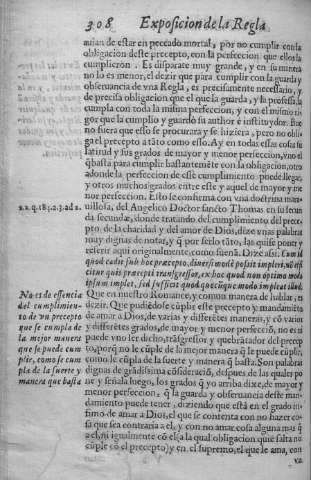 308 Exposicion de la Regla
urian de estar en peccado mortal, por no cumplir con la
obligacion deste precepto, con la perfeccion que ellos la
cumplieron. Es disparate muy grande, y en su manera
no lo es menor, el dezir que para cumplir con la guarda y
obseruancia de vna Regla, es precisamente necessario, y
de precisa obligacion que el que la guarda, y la professa, la
cumpla con toda la misma perfeccion, y con el mismo ri-
gor que la cumplio y guardò su author è instituydor. Bue
no fuera que esso se procurara y se hiziera, pero no obli-
ga el precepto a tãto como esso. Ay en todas essas cosa su
latitud y sus grados de mayor y menor perfeccion, vno el
q̃ basta para cumplir bastantemẽte con la obligacion, otro
adonde la perfeccion de esse cumplimiento puede llegar,
y otros muchos grados entre este y aquel de mayor y me
nor perfeccion. Esto se confirma con vna doctrina mara-
2.2.q.184.2.3.ad 2.
uillosa, del Angelico Doctor sancto Thomas en su secun
da secundæ, donde tratando del cumplimiento del prece
pto de la charidad y del amor de Dios, dize vnas palabras
muy dignas de notar, y q̃ por serlo tãto, las quise poner y
referir aqui originalmente, como suenã. Dize assi. Cum id
quod cadit sub hoc præcepto, diuersimodè possit impleri, nõ effi
citur quis præcepti transgressor, ex hoc quod non optimo modo
ipsum implet, sed sufficit quod quocũque modo impleat illud.
No es de essencia
del cumplimien-
to de vn precepto
que se cumpla de
la mejor manera
que se puede cum
plir, como se cum
pla de la suerte y
manera que basta
Que en nuestro Romance, y comun manera de hablar, es
dezir. Que pudiẽdose cũplir este precepto y mandamiẽto
de amar a Dios, de varias y differẽtes maneras, y cõ varios
y differẽtes grados, de mayor y menor perfecciõ, no es ni
puede vno ser dicho, trãsgressor y quebrãtador del precep
to, porq̃ no le cũple de la mejor manera q̃ le puede cũplir,
como le cũpla de la suerte y manera q̃ basta. Son palabras
dignas de grãdissima cõsideraciõ, despues de las quales po
ne y señala luego, los grados q̃ yo arriba dixe, de mayor y
menor perfeccion, q̃ la guarda y obseruancia deste man-
damiento puede tener, diziendo que està en el grado in-
fimo de amar a Dios, el que se contenta con no hazer co-
sa que sea contraria a el, y con no amar cosa alguna mas q̃
a el, ni igualmente cõ el (a la qual obligacion quiẽ falta no
cũple cõ el precepto) y en el supremo, el que le ama, con
va-